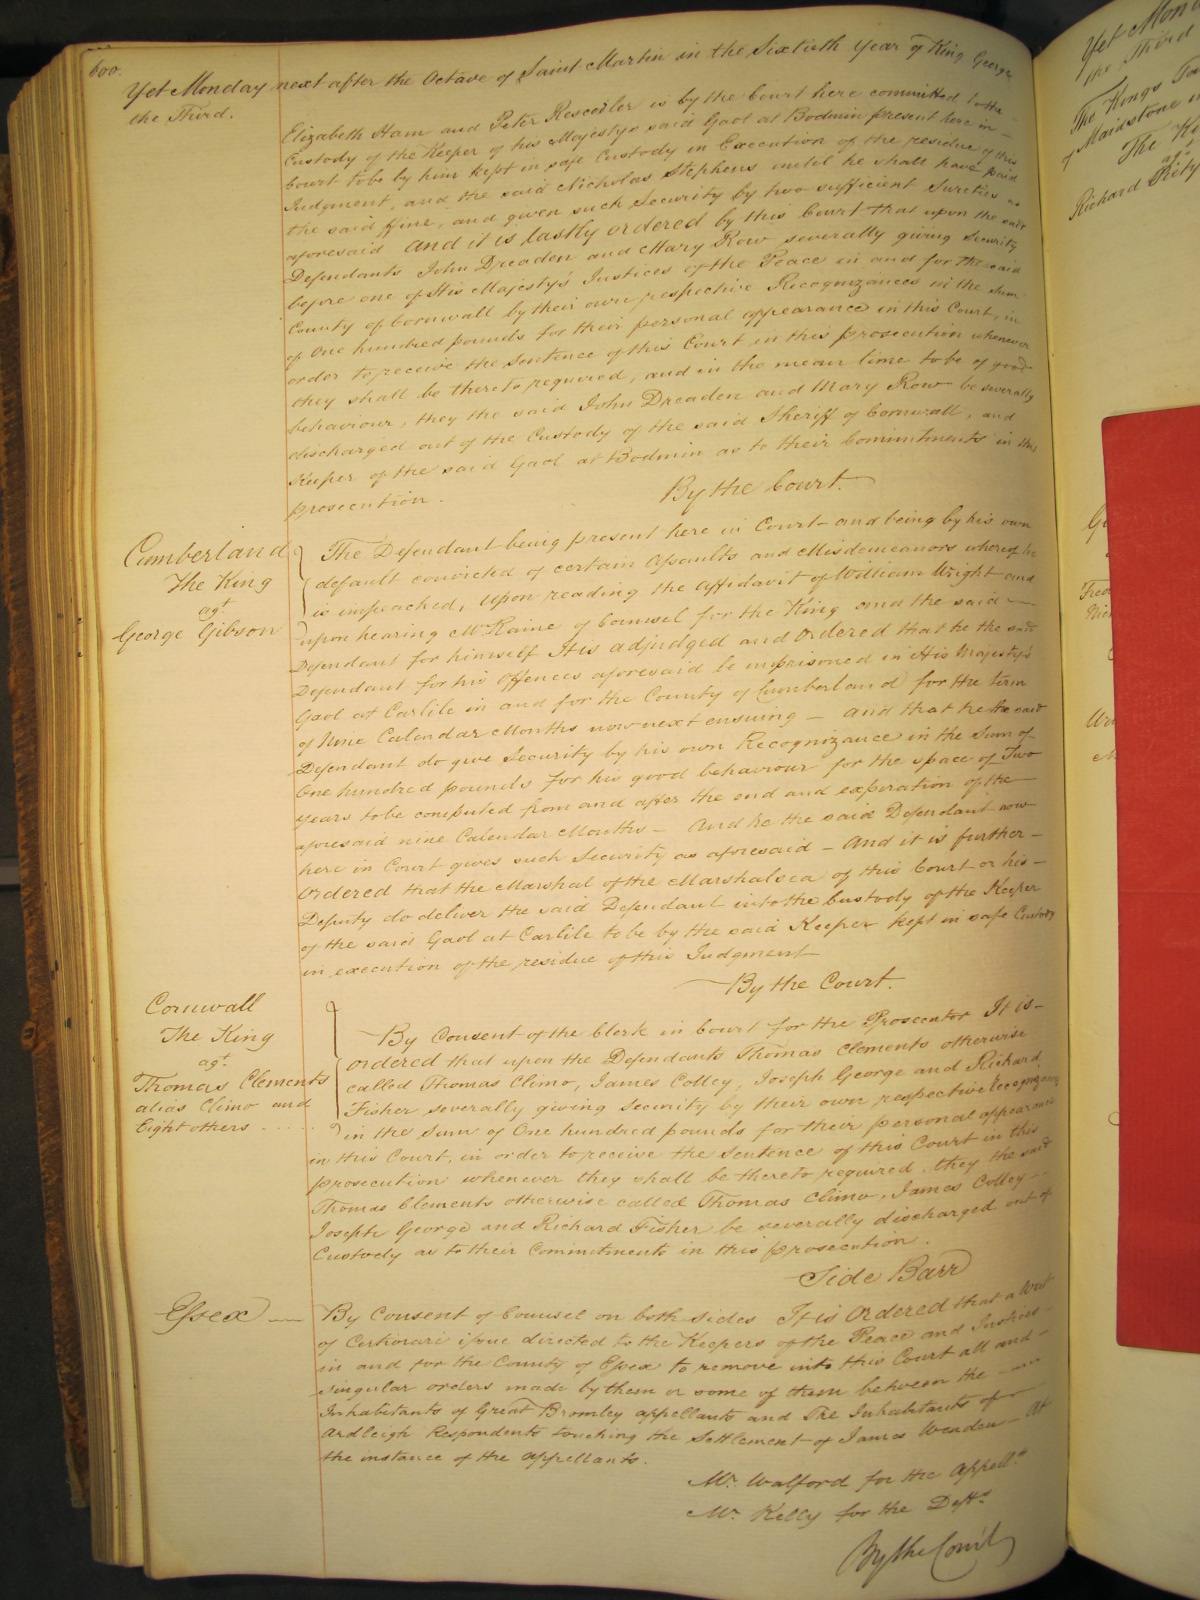 600.
Yet Monday next after the Octave of Saint Martin in the Sixtieth Year of King George
the Third.
Elizabeth Ham and Peter is by the Court here committed to the
Custody of the Keeper of his Majestys said Gaol at Bodmin present here in
Court to be by him kept in safe Custody in Execution of the residue of this
Judgment, and the said Nicholas Stephens until he shall have paid
the said ffine, and given such Security by two sufficient Sureties as
aforesaid And it is lastly ordered by this Court that upon the said
Defendants John Dreaden and Mary Row severally giving Security
before one of His Majesty's Justices of the Peace in and for the said
County of Cornwall by their own respective Recognizances in the Sum
of One hundred pounds for their personal appearance in this Court, in
order to receive the Sentence of this Court in this prosecution whenever
they shall be thereto required, and in the mean time to be of good
behaviour, they the said John Dreaden and Mary Row be severally
discharged out of the Custody of the said Sheriff of Cornwall, and
Keeper of the said Gaol at Bodmin as to their Commitments in this
prosecution.
By the Court.
Cumberland
The King
agt
George Gibson
The Defendant being present here in Court and being by his own
default convicted of certain Assaults and Misdemeanors whereof he
is impeached, Upon reading the Affidavit of William Wright and
upon hearing Mr Raine of Counsel for the King and the said
Defendant for himself It is adjudged and Ordered that he the said
Defendant for his Offences aforesaid be imprisoned in His Majesty's
Gaol at Carlile in and for the County of Cumberland for the term
of Nine Calendar Months now next ensuing – And that he the said
Defendant do give Security by his own Recognizance in the Sum of
One hundred pounds for his good behaviour for the space of Two
years to be computed from and after the end and expiration of the
aforesaid nine Calendar Months – And he the said Defendant now
here in Court gives such Security as aforesaid – And it is further –
Ordered that the Marshal of the Marshalsea of this Court or his –
Deputy do deliver the said Defendant into the Custody of the Keeper
of the said Gaol at Carlile to be by the said Keeper kept in safe Custody
in execution of the residue of this Judgment
By the Court.
Cornwall
The King
agt
Thomas Clements
alias Climo and
Eight others
By Consent of the Clerk in Court for the Prosecutor It is –
ordered that upon the Defendants Thomas Clements otherwise
called Thomas Climo, James Colley, Joseph George and Richard
Fisher severally giving Security by their own respective Recognizance
in the Sum of One hundred pounds for their personal appearance
in this Court, in order to receive the Sentence of this Court in this
prosecution whenever they shall be thereto required they the said
Thomas Clements otherwise called Thomas Climo, James Colley
Joseph George and Richard Fisher be severally discharged out of
Custody as to their Commitments in this prosecution.
Side Barr
Essex
By Consent of Counsel on both sides It is Ordered that a Writ
of Certiorari issue directed to the Keepers of the Peace and Justices
in and for the County of Essex to remove into this Court all and –
singular orders made by them or some of them between the
Inhabitants of Great Bromley appellants and The Inhabitants of
Ardleigh Respondents touching the Settlement of James Wenden – At
the instance of the appellants.
Mr. Walford for the Appellts
Mr. Kelly for the Defts
By the Court
Yet Mon
the Third
The Kings
of Maidstone
The Ki
agt
Richard